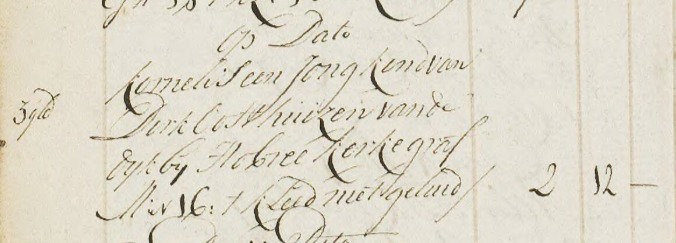 op Dato
Kornelis een Jong Kend van
3 gld Dirk Oosthuizen van de
Dyk by Hobree Kerke graf
N:o 16: t Kleed met geluid / 2 12 —